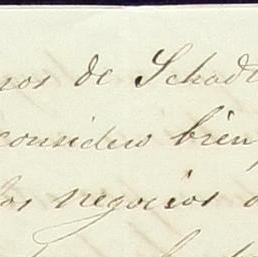 nos de Schadt
considero bien
los negocios d